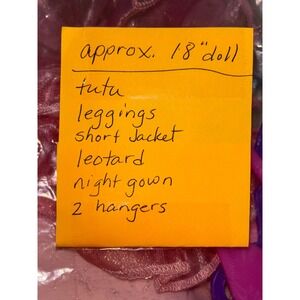 approx. 18" doll
tutu
leggings
short Jacket
leotard
night gown
2 hangers